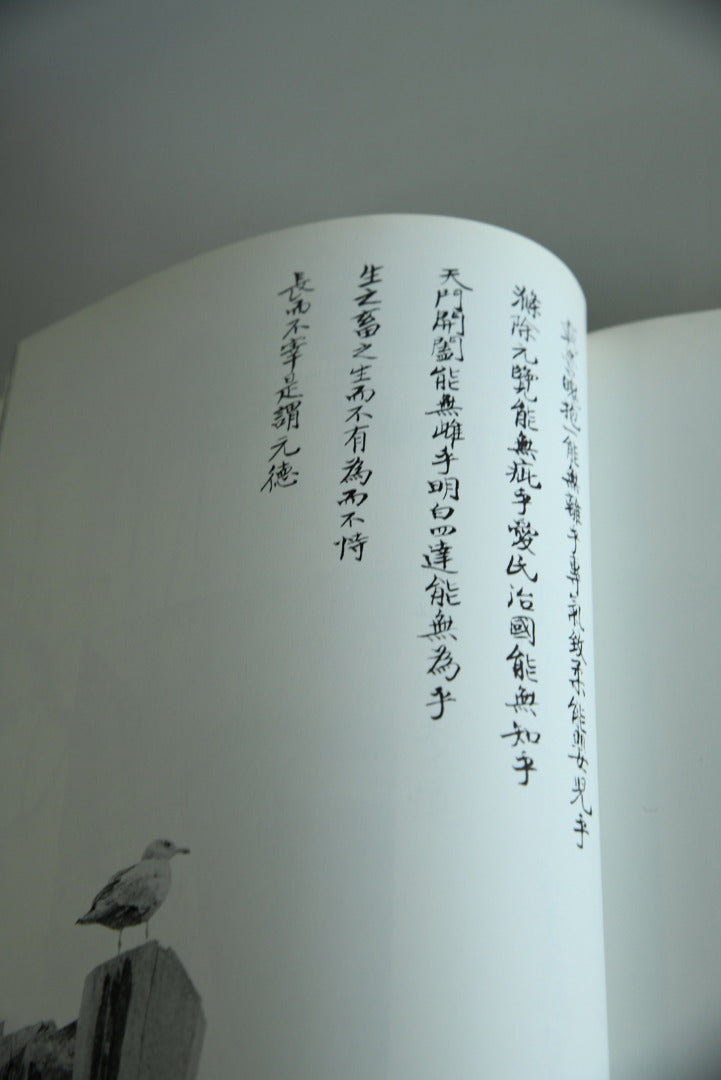 載營魄抱一能無離乎專氣致柔能嬰兒乎
滌除元覽能無疵乎愛民治國能無知乎
天門開闔能無雌乎明白四達能無為乎
生之畜之生而不有為而不恃
長而不宰是謂元德